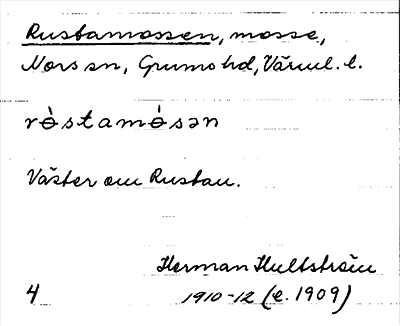 Rustamossen, mosse,
Nors sn, Grums hd, Värml. l.
rɵ̀stamɵ́sən
Väster om Rustan.
Herman Hultström
4 1910-12 (e. 1909)